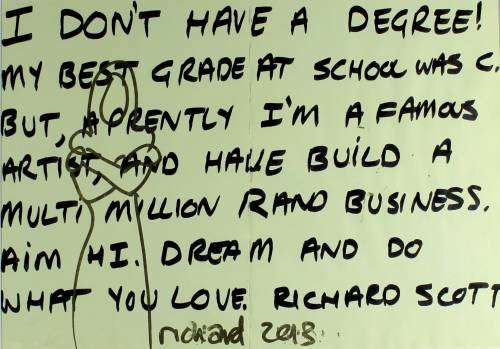 I DON'T HAVE A DEGREE!
MY BEST GRADE AT SCHOOL WAS C.
BUT, APRENTLY I'M A FAMOUS
ARTIST, AND HAVE BUILD A
MULTI MILLION RAND BUSINESS.
AIM HI. DREAM AND DO
WHAT YOU LOVE. RICHARD SCOTT
richard 2013